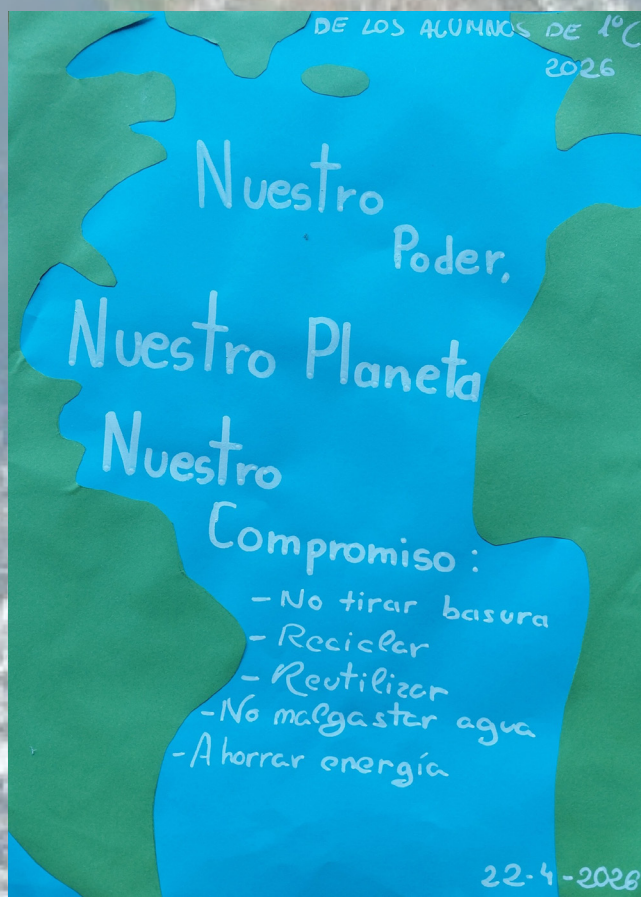 DE LOS ALUMNOS DE 1º C
2026
Nuestro
Poder,
Nuestro Planeta
Nuestro
Compromiso:
- No tirar basura
- Reciclar
- Reutilizar
- No malgastar agua
- Ahorrar energía
22-4-2026